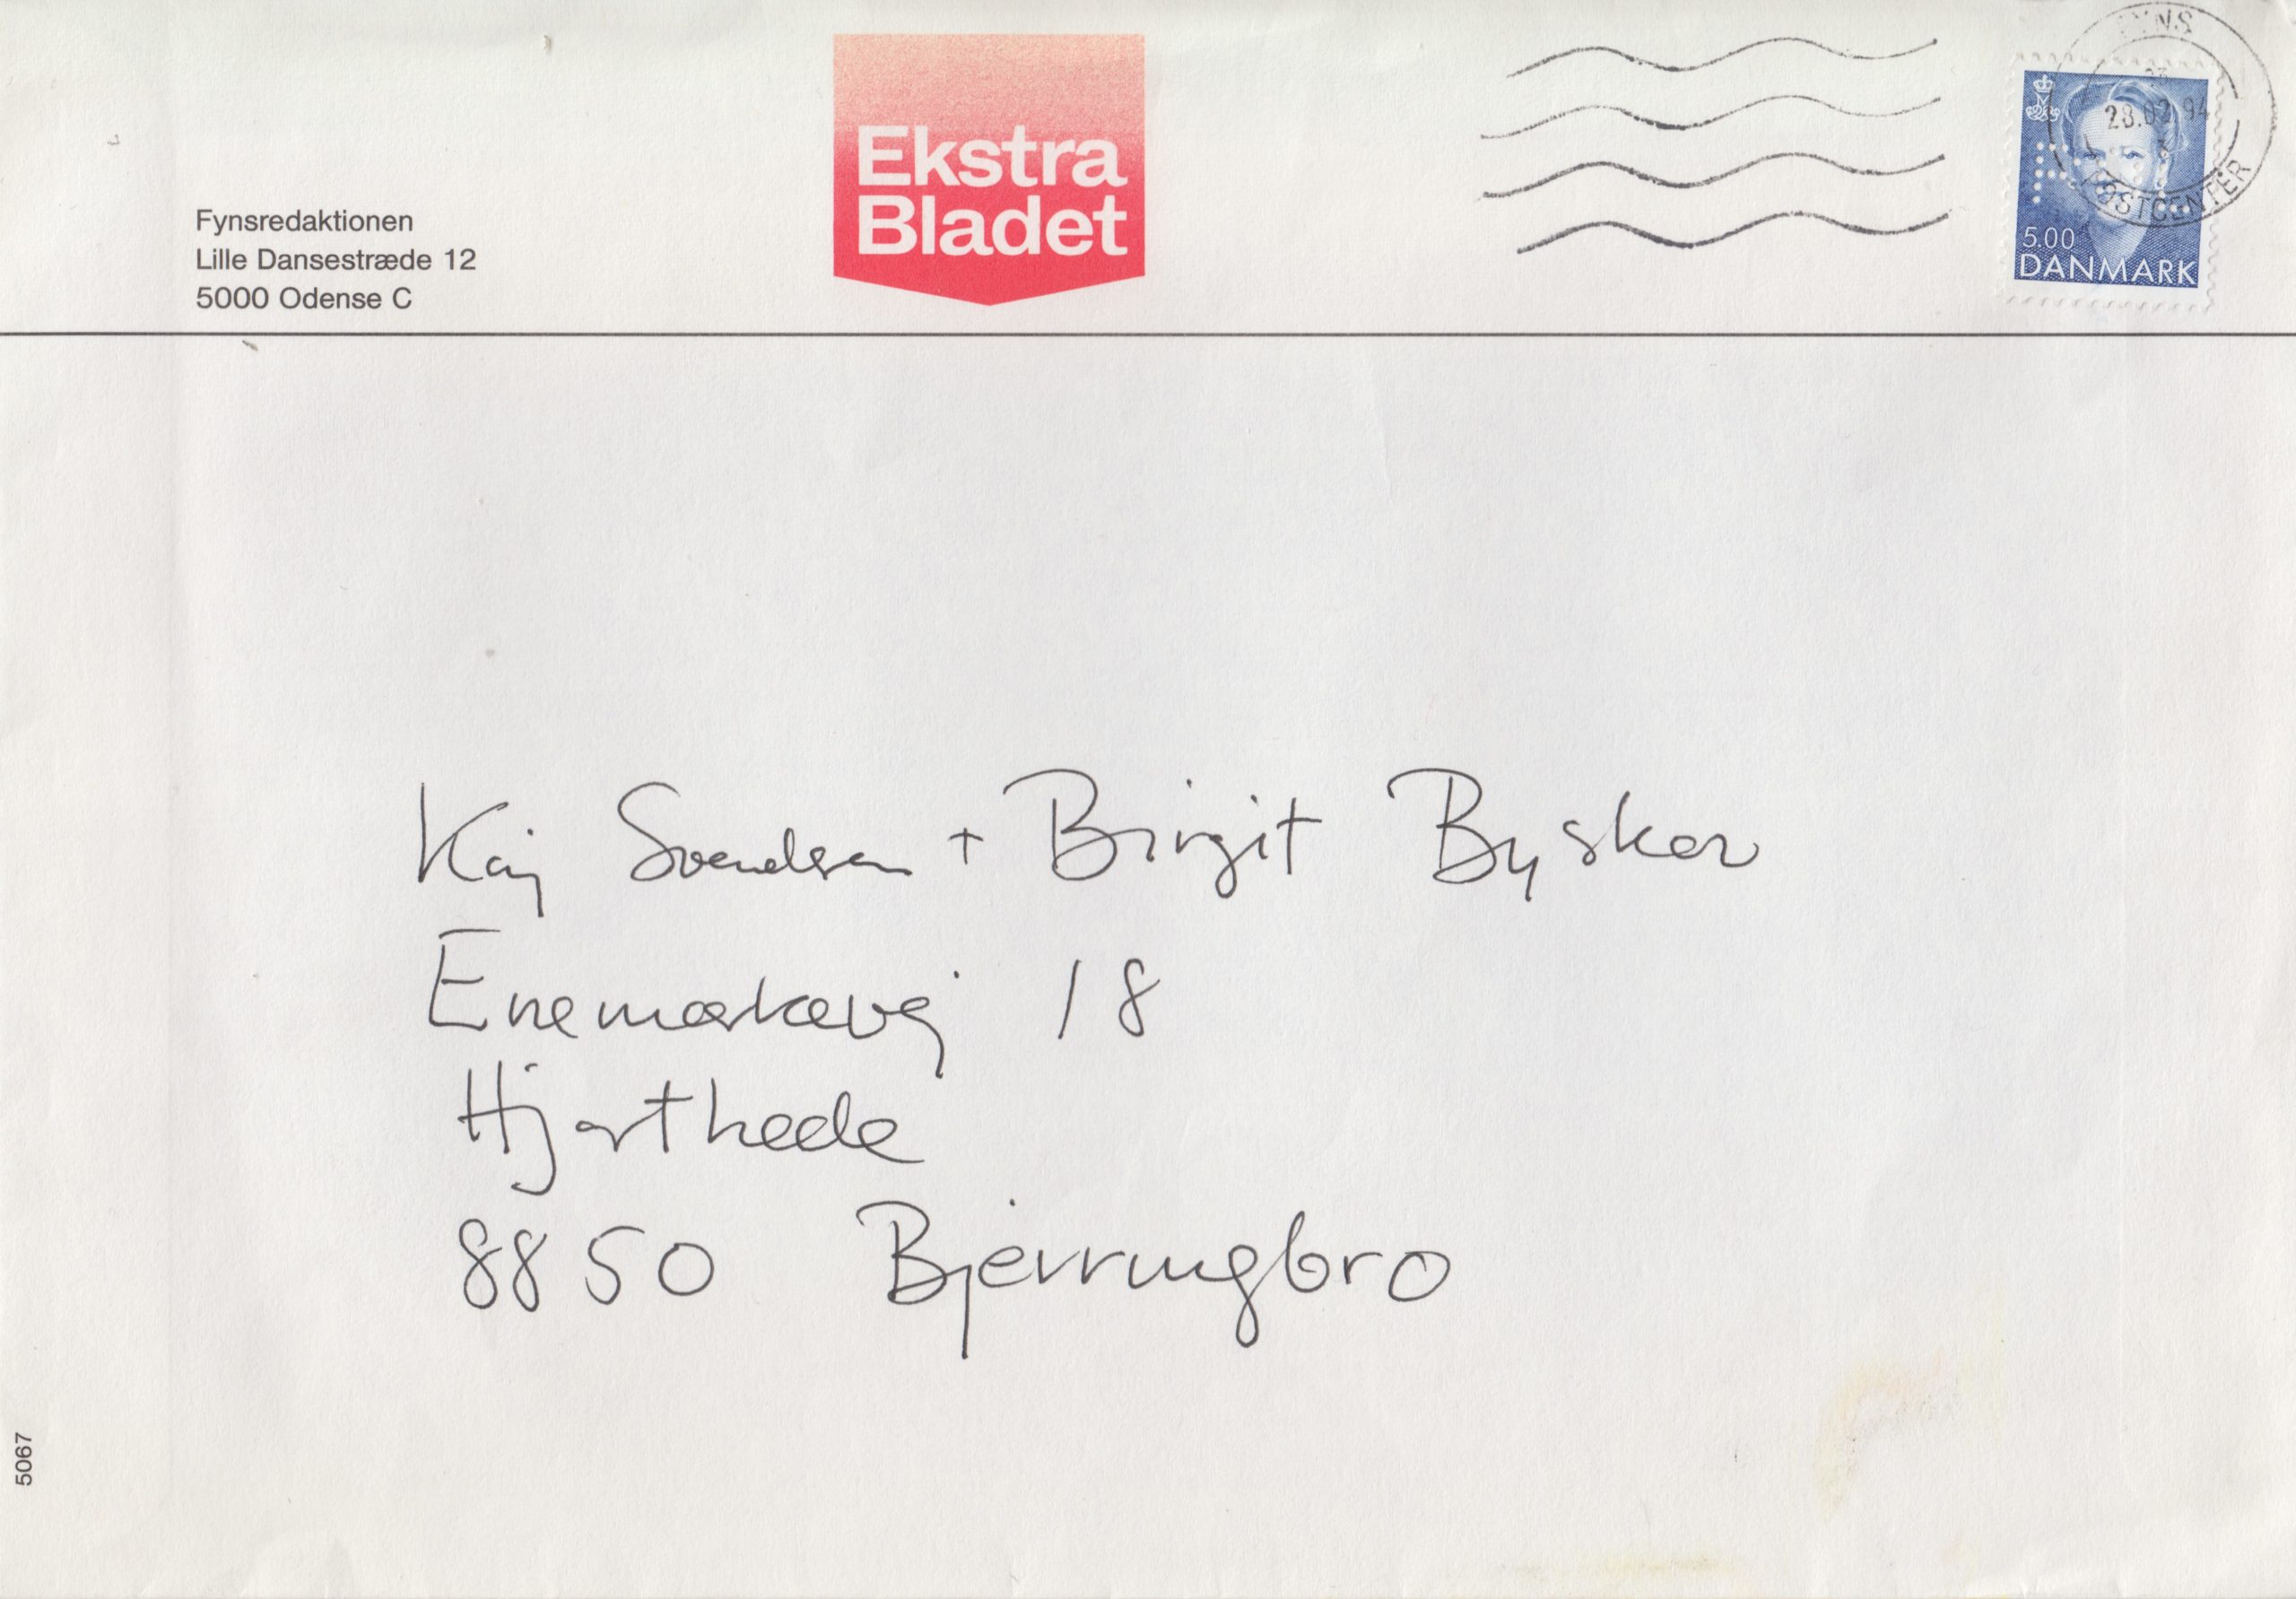 Ekstra
Bladet
Fynsredaktionen
Lille Dansestræde 12
5000 Odense C
FYNS
28.02.94
POSTCENTER
5.00
DANMARK
Kaj Svendsen + Birgit Bysker
Enemærkevej 18
Hjorthede
8850 Bjerringbro
5067